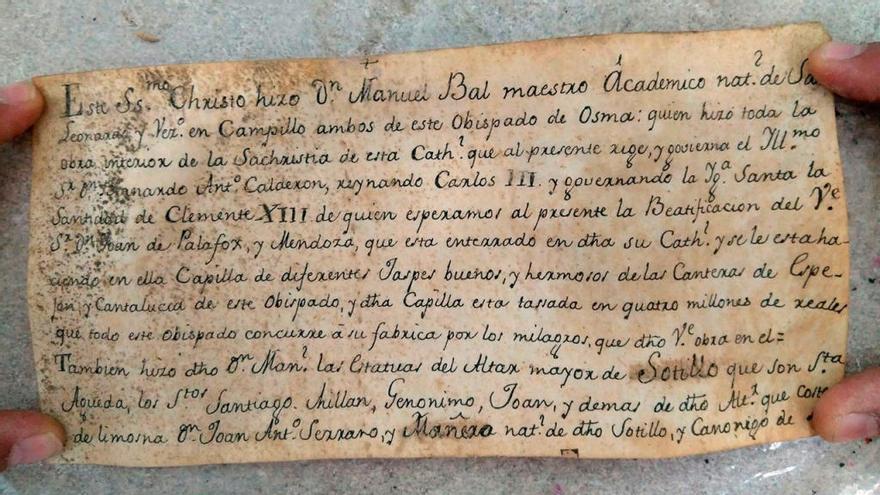 +
Este Ss.mo Christo hizo Dn. Manuel Bal maestro Academico nat.l de Sn
Leonardo, y Vez.o en Campillo ambos de este Obispado de Osma: quien hizó toda la
obra interior de la Sachristia de esta Cath.l que al presente rige, y govierna el Yll.mo
Sr. Dn. Bernardo Ant.o Calderon, reynando Carlos III. y governando la Yg.a Santa la
Santidad de Clemente XIII. de quien esperamos al presente la Beatificacion del V.e
Sr. Dn. Joan de Palafox, y Mendoza, que esta enterrado en dha su Cath.l y se le esta ha-
ciendo en ella Capilla de diferentes Jaspes buenos, y hermosos de las Canteras de Espe-
jon, y Cantalucia de este Obispado, y dha Capilla esta tassada en quatro millones de reales
que todo este Obispado concurre â su fabrica por los milagros, que dho V.e obra en el=
Tambien hizo dho Dn. Man.l las Estatuas del Altar mayor de Sotillo que son Sta.
Agueda, los Stos Santiago. Millan, Geronimo, Joan, y demas de dho Alt.r que costeo
de limosna Dn. Joan Ant.o Serrano, y Mañero nat.l de dho Sotillo, y Canonigo de